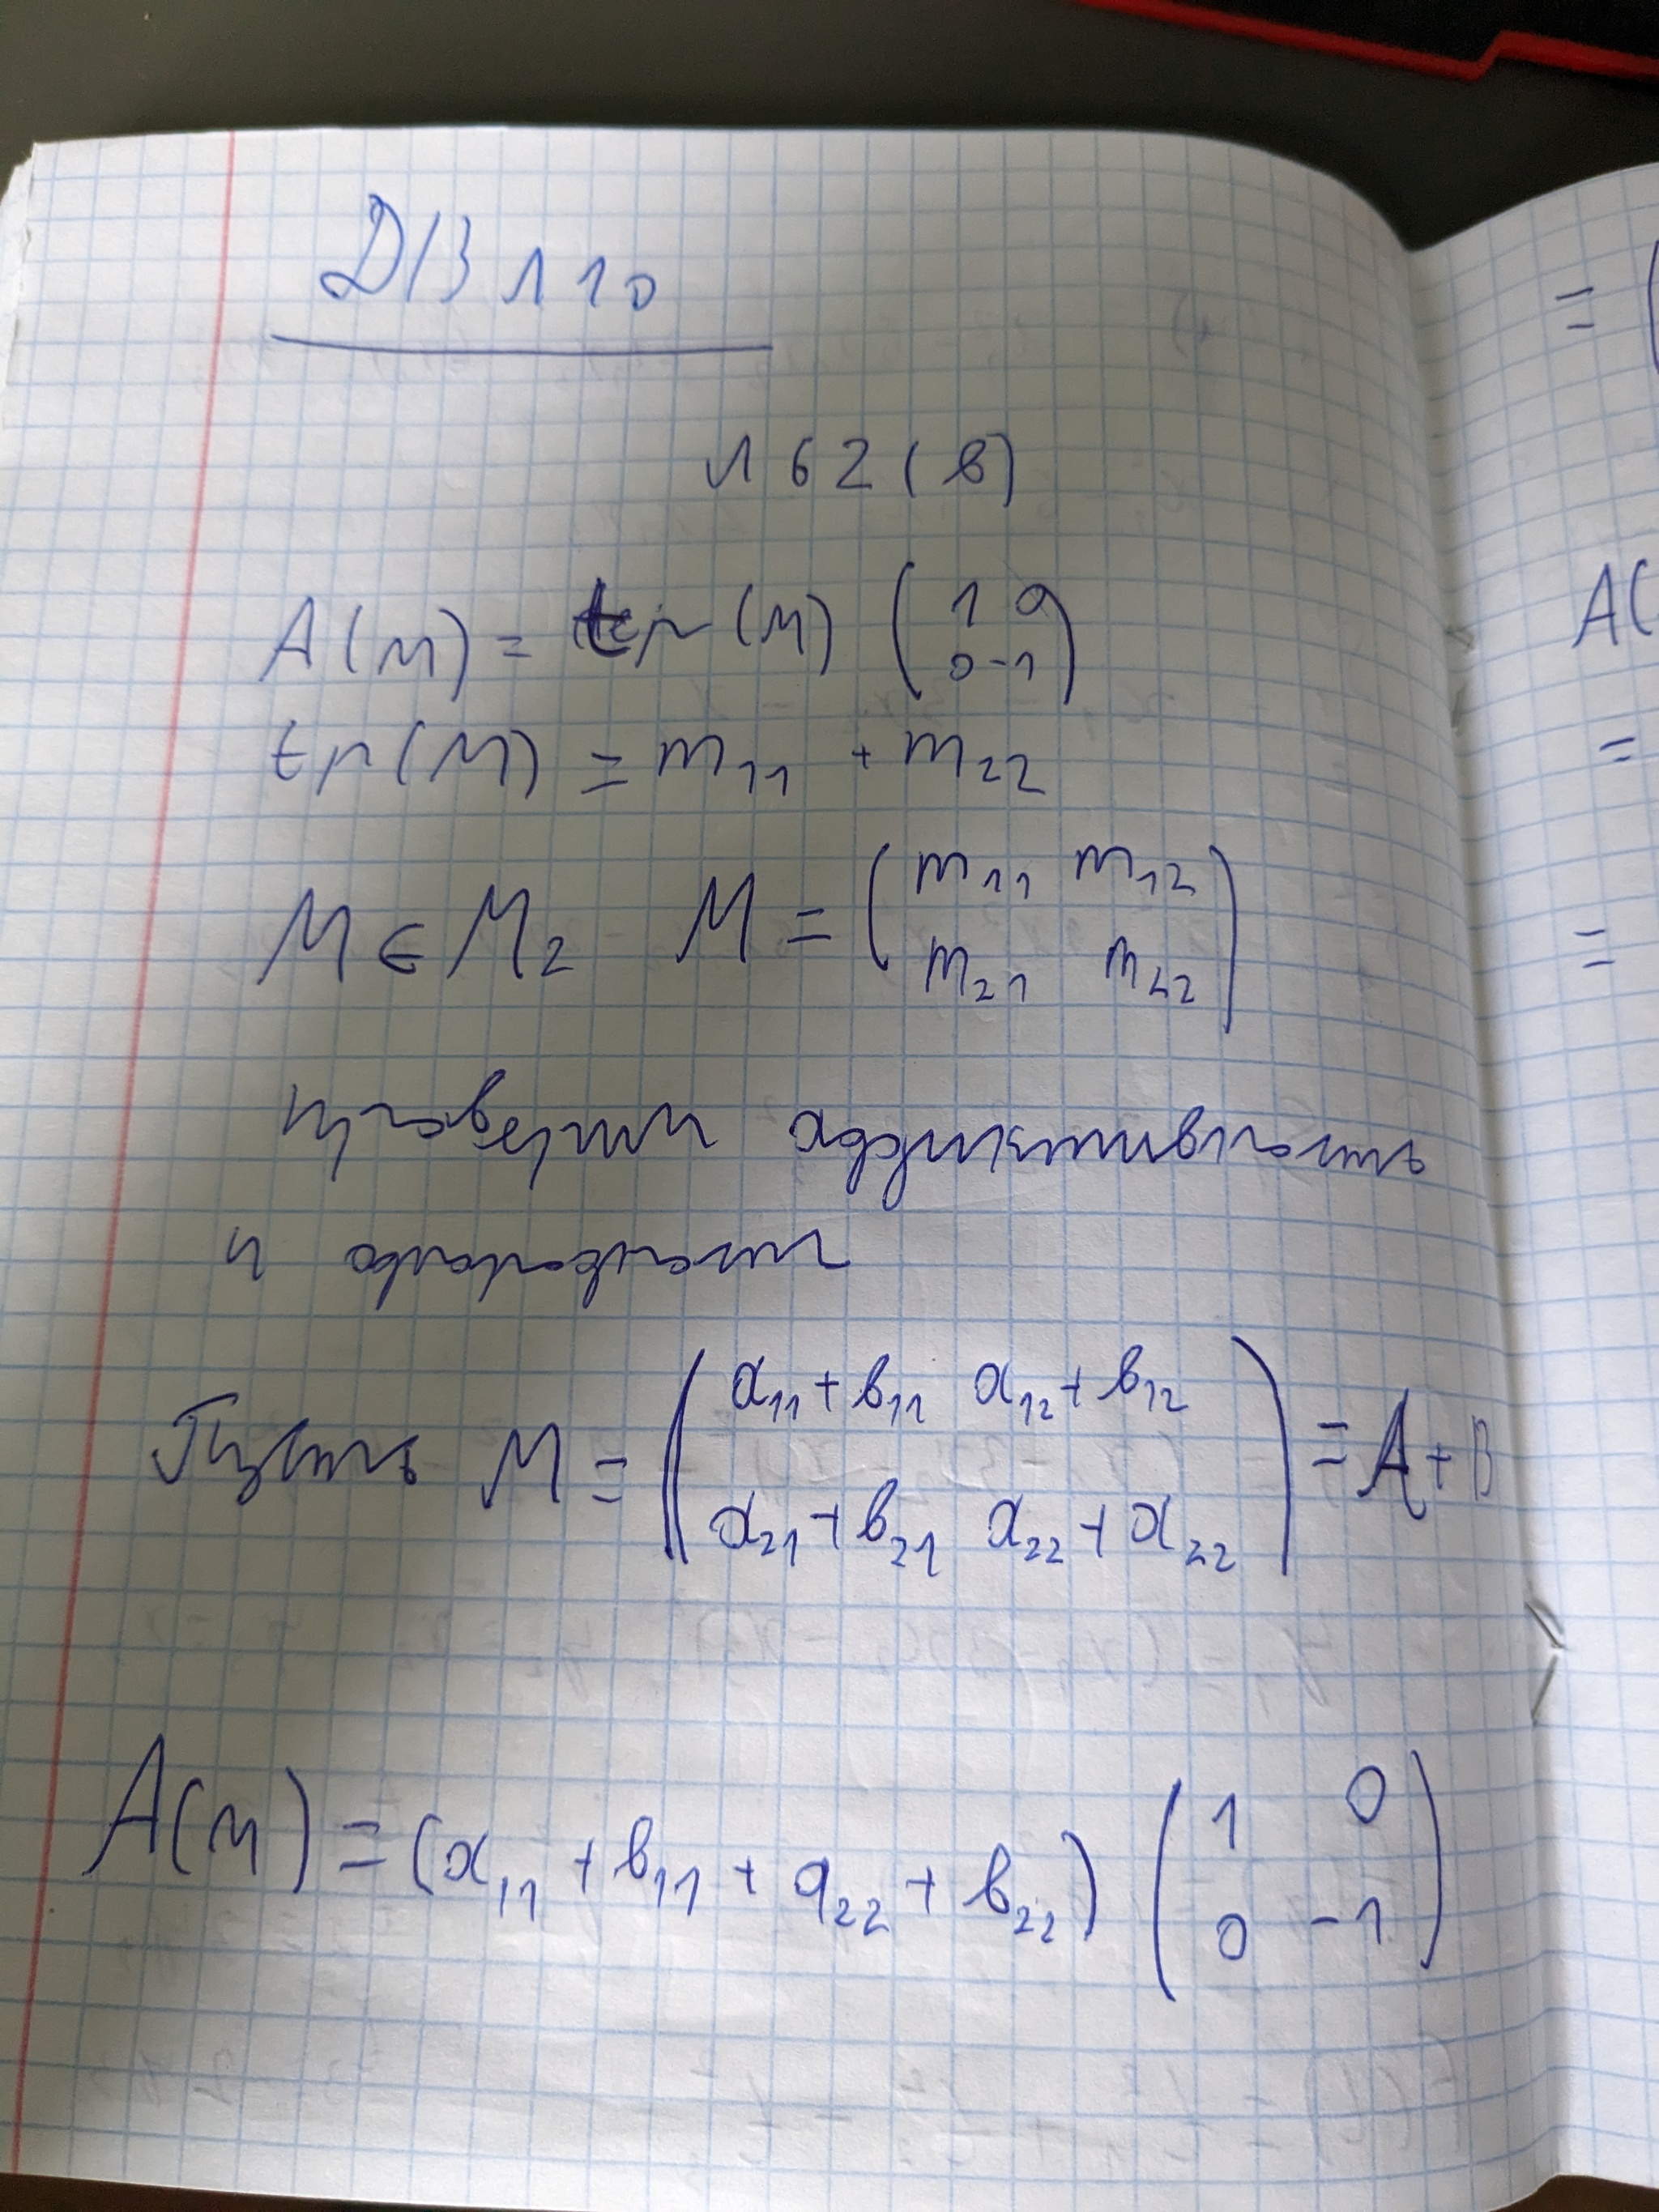 ДЗ №10
№62(в)
A(M) = tr(M) (1 0
0 -1)
tr(M) = m₁₁ + m₂₂
M ∈ M₂ M = (m₁₁ m₁₂
m₂₁ m₂₂)
проверим аддиктивность
и однородность
Пусть M = (a₁₁+b₁₁ a₁₂+b₁₂
a₂₁+b₂₁ a₂₂+a₂₂) = A+B
A(M) = (a₁₁ + b₁₁ + a₂₂ + b₂₂) (1 0
0 -1)
= (
A(
=
=